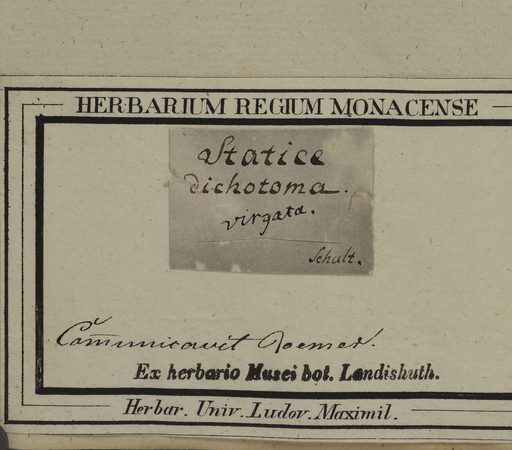 HERBARIUM REGIUM MONACENSE
Statice
dichotoma.
virgata.
Schult.
Com̄municavit Roemer.
Ex herbario Musei bot. Landishuth.
Herbar. Univ. Ludov. Maximil.